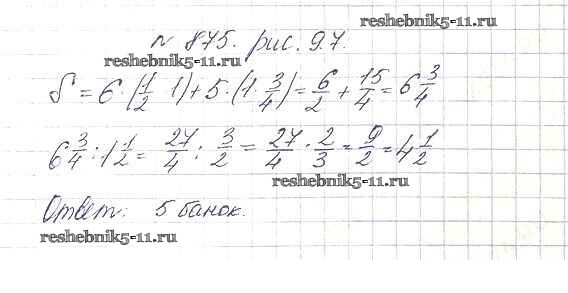 reshebnik5-11.ru
№ 875. рис. 9.7.
reshebnik5-11.ru
S = 6·(1/2 · 1) + 5·(1·3/4) = 6/2 + 15/4 = 6 3/4
6 3/4 : 1 1/2 = 27/4 : 3/2 = 27/4 · 2/3 = 9/2 = 4 1/2
reshebnik5-11.ru
Ответ: 5 банок.
reshebnik5-11.ru